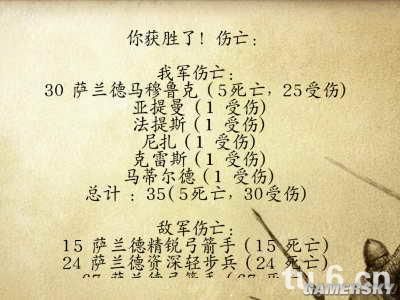 你获胜了! 伤亡:
我军伤亡:
30 萨兰德马穆鲁克 (5死亡, 25受伤)
亚提曼 (1 受伤)
法提斯 (1 受伤)
尼扎 (1 受伤)
克雷斯 (1 受伤)
马蒂尔德 (1 受伤)
总计 : 35(5死亡, 30受伤)
敌军伤亡:
15 萨兰德精锐弓箭手 (15 死亡)
24 萨兰德资深轻步兵 (24 死亡)
tu.6.cn
GAMERSKY